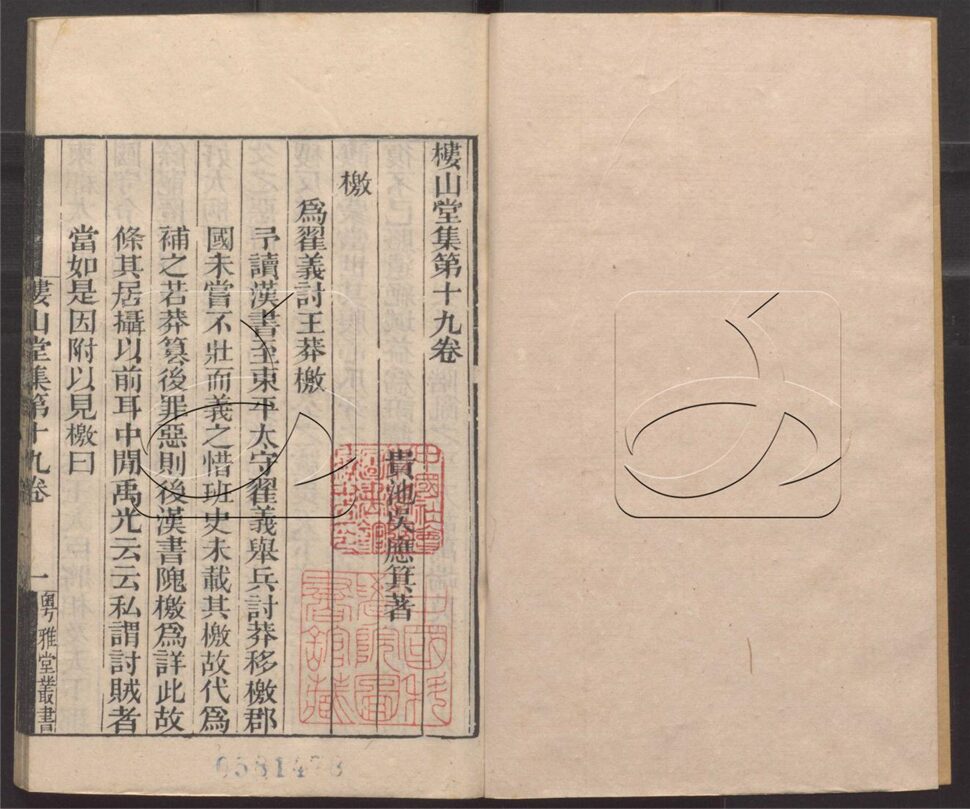 樓山堂集第十九卷
貴池吳應箕著
檄
爲翟義討王莽檄
予讀漢書至東平太守翟義舉兵討莽移檄郡
國未嘗不壯而義之惜班史未載其檄故代爲
補之若莽簒後罪惡則後漢書隗檄爲詳此故
條其居攝以前耳中閒禹光云云私謂討賊者
當如是因附以見檄曰
樓山堂集第十九卷
一
粵雅堂叢書
0581478